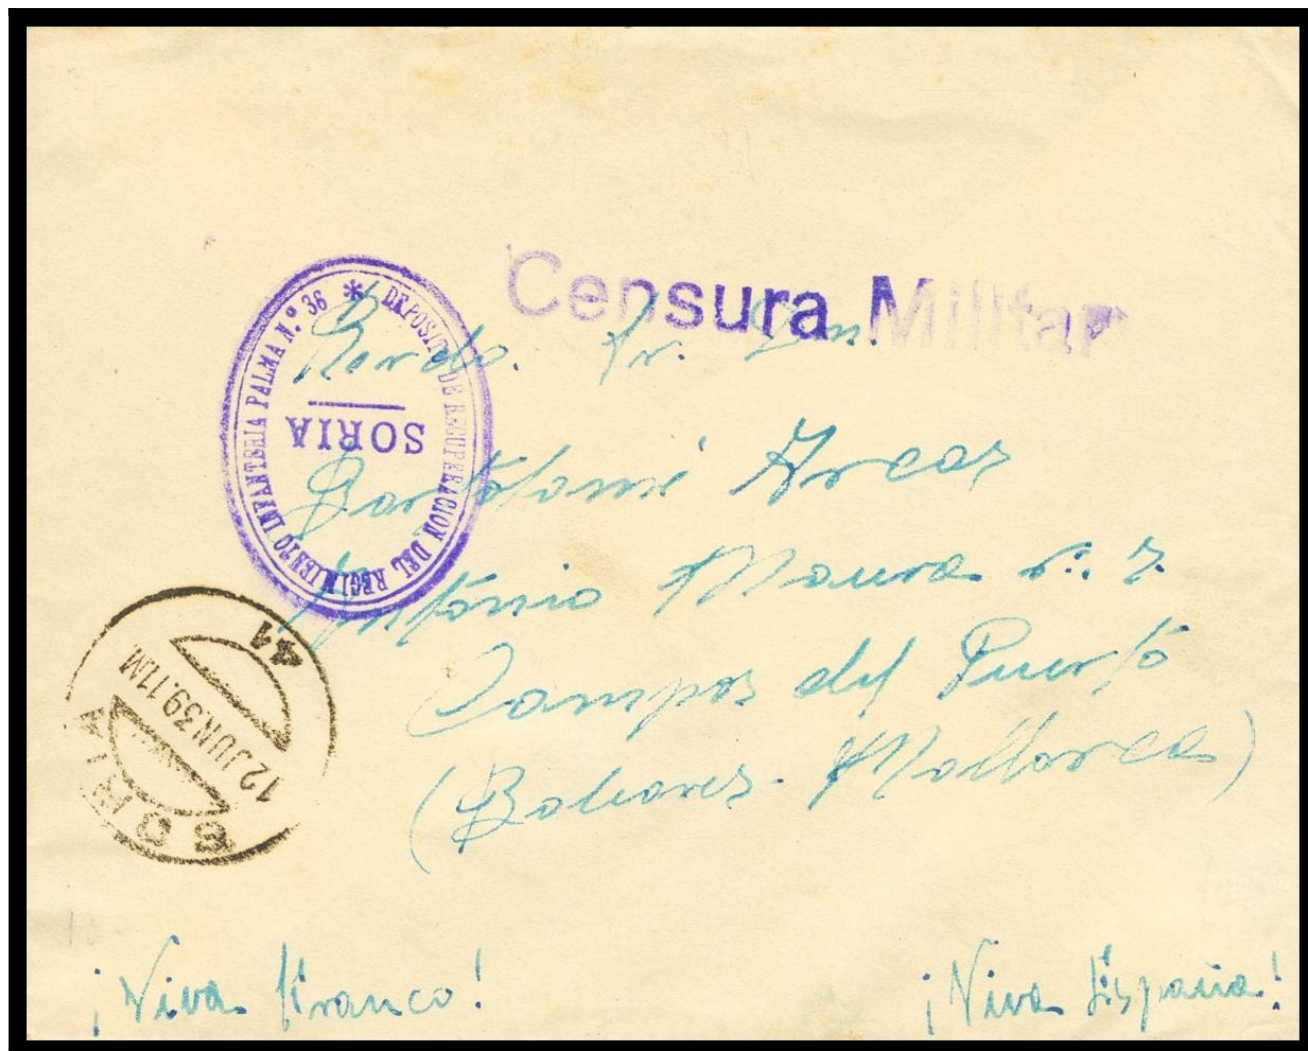 Censura Militar
DEPOSITO DE RECUPERACION DEL REGIMIENTO INFANTERIA PALMA N.º 36 *
SORIA
Rvrdo. Sr. Don.
Bartolomé Arcas
Antonio Maura n.:
Campos del Puerto
(Baleares - Mallorca)
41
12.JUN.39.11M.
SORIA
¡Viva Franco!
¡Viva España!